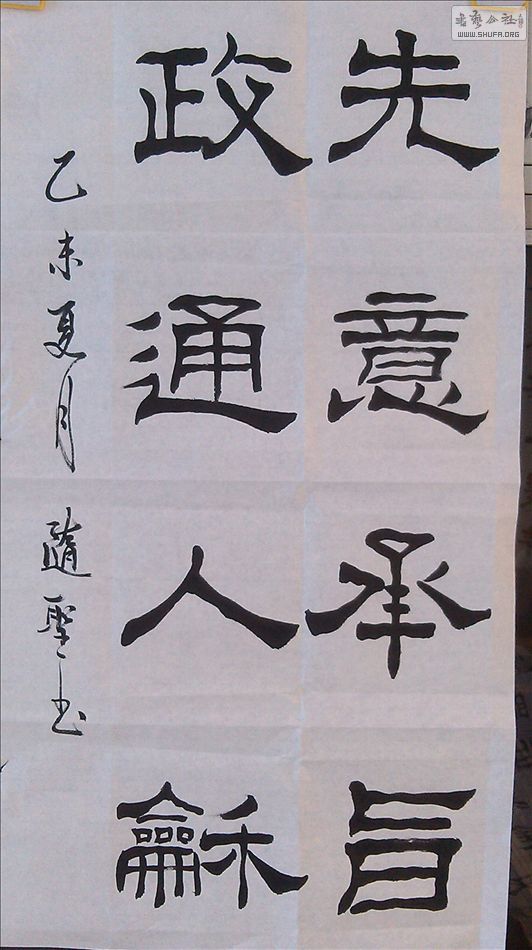 先意承旨
政通人龢
乙未夏月 随聖书
书艺公社
WWW.SHUFA.ORG